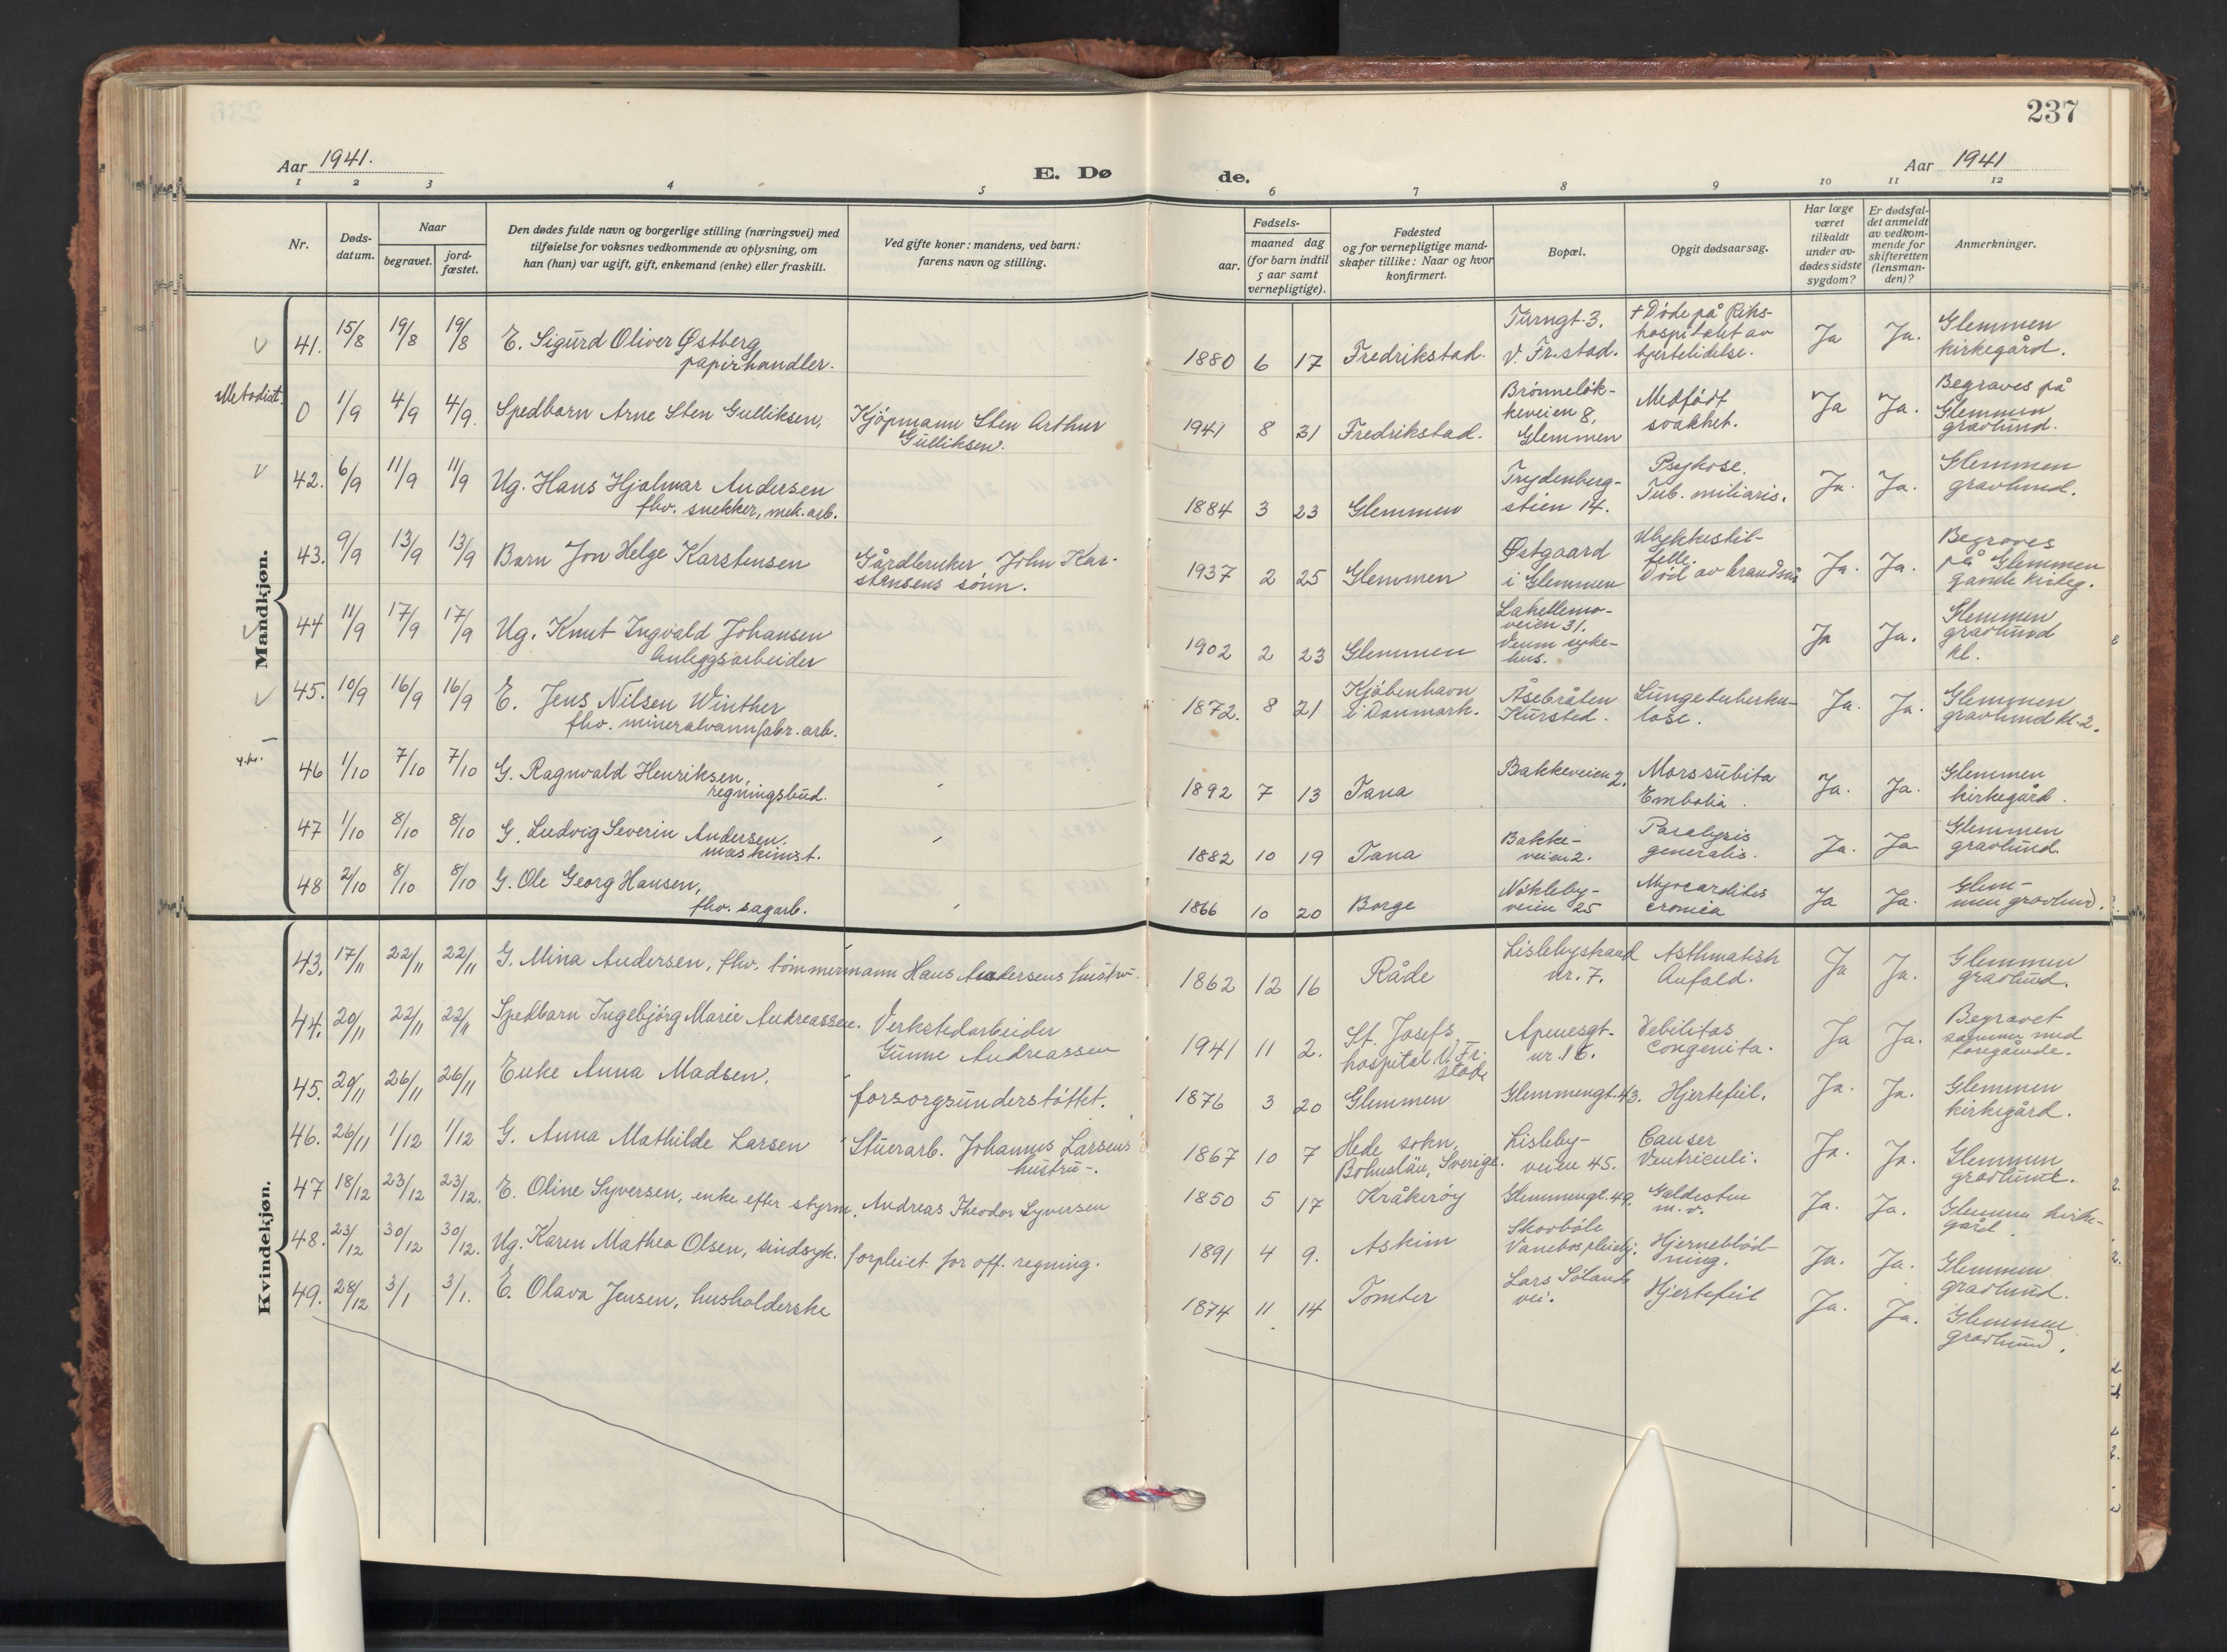 237
Aar 1941.
E. Dø
de.
Aar 1941
1 2 3 4 5 6 7 8 9 10 11 12
Nr.
Døds-
datum.
Naar
begravet.
jord-
fæstet.
Den dødes fulde navn og borgerlige stilling (næringsvei) med
tilføielse for voksnes vedkommende av oplysning, om
han (hun) var ugift, gift, enkemand (enke) eller fraskilt.
Ved gifte koner: mandens, ved barn:
farens navn og stilling.
Fødsels-
aar.
maaned dag
(for barn indtil
5 aar samt
vernepligtige).
Fødested
og for vernepligtige mand-
skaper tillike: Naar og hvor
konfirmert.
Bopæl.
Opgit dødsaarsag.
Har læge
været
tilkaldt
under av-
dødes sidste
sygdom?
Er dødsfal-
det anmeldt
av vedkom-
mende for
skifteretten
(lensman-
den)?
Anmerkninger.
Mandkjøn.
41. 15/8 19/8 19/8 E. Sigurd Oliver Østberg
papirhandler.
1880 6 17 Fredrikstad.
Turngt. 3.
V. Fr.stad.
+ Døde på Riks-
hospitalet av
hjertelidelse.
Ja Ja.
Glemmen
kirkegård.
Metodist.
0 1/9 4/9 4/9. Spedbarn Arne Sten Gulliksen,
Kjøpmann Sten Arthur
Gulliksen.
1941 8 31 Fredrikstad.
Brønneløk-
keveien 8,
Glemmen
Medfødt
svakhet.
Ja Ja.
Begraves på
Glemmen
gravlund.
42. 6/9 11/9 11/9 Ug. Hans Hjalmar Andersen
fhv. snekker, mek. arb.
1884 3 23 Glemmen
Trydenberg-
stien 14.
Psykose.
Tub. miliaris.
Ja. Ja.
Glemmen
gravlund.
43. 9/9 13/9 13/9 Barn Jon Helge Karstensen
Gårdbruker John Kar-
stensens sønn.
1937 2 25 Glemmen
Østgaard
i Glemmen
Ulykkestil-
felle.
Død av brandsår
Ja. Ja.
Begraves
på Glemmen
gamle kirkeg.
44 11/9 17/9 17/9 Ug. Knut Ingvald Johansen
Anleggsarbeider
1902 2 23 Glemmen
Lahellemo-
veien 31.
Veum syke-
hus.
Ja Ja.
Glemmen
gravlund
kl.
45. 10/9 16/9 16/9 E. Jens Nilsen Winther
fhv. mineralvannfabr. arb.
1872. 8 21 Kjøbenhavn
i Danmark.
Åsebråten
Kursted.
Lungetuberku-
lose.
Ja. Ja.
Glemmen
gravlund kl. 2.
46 1/10 7/10 7/10 G. Ragnvald Henriksen,
regningsbud.
1892 7 13 Tana
Bakkeveien 2.
Mors subita
Embolia.
Ja. Ja.
Glemmen
kirkegård.
47 1/10 8/10 8/10 G. Ludvig Severin Andersen.
maskinist.
1882 10 19 Tana
Bakke-
veien 2.
Paralysis
generalis.
Ja. Ja
Glemmen
gravlund.
48 2/10 8/10 8/10 G. Ole Georg Hansen,
fhv. sagarb.
1866 10 20 Borge
Nøkleby-
veien 25
Myocarditis
cronica
Ja Ja.
Glem-
men gravlund.
Kvindekjøn.
43. 17/11 22/11 22/11 G. Mina Andersen, fhv. tømmermann Hans Andersens hustru.
1862 12 16 Råde
Lislebystrand
nr. 7.
Asthmatisk
Anfald.
Ja Ja.
Glemmen
gravlund.
44. 20/11 22/11 22/11 Spedbarn Ingebjørg Marie Andreassen.
Verkstedarbeider
Gunne Andreassen
1941 11 2. St. Josefs
hospital, V. Fr.
stad
Apenesgt-
nr. 16.
Debilitas
congenita.
Ja Ja.
Begravet
sammen med
foregående.
45. 20/11 26/11 26/11 Enke Anna Madsen.
forsorgsunderstøttet.
1876 3 20 Glemmen
Glemmengt. 43.
Hjertefeil.
Ja. Ja.
Glemmen
kirkegård.
46. 26/11 1/12 1/12 G. Anna Mathilde Larsen
Stuerarb. Johannes Larsens
hustru.
1867 10 7 Hede sokn,
Bohuslän, Sverige.
Lisleby-
veien 45.
Cancer
Ventriculi.
Ja. Ja.
Glemmen
gravlund.
47 18/12 23/12 23/12. E. Oline Syversen, enke efter styrm. Andreas Theodor Syversen
1850 5 17 Kråkerøy
Glemmengt. 49.
Galdesten
m. v.
Ja. Ja.
Glemmen kirke-
gård.
48. 23/12 30/12 30/12. Ug. Karen Mathea Olsen, sindsyk. forpleiet for off. regning.
1891 4 9. Askim
Skovbøle
Vanebos pleiehj.
Hjerneblød-
ning.
Ja. Ja.
Glemmen
gravlund.
49. 28/12 3/1 3/1. E. Olava Jensen, husholderske
1874 11 14 Tomter
Lars Sølands
vei.
Hjertefeil
Ja. Ja.
Glemmen
gravlund.